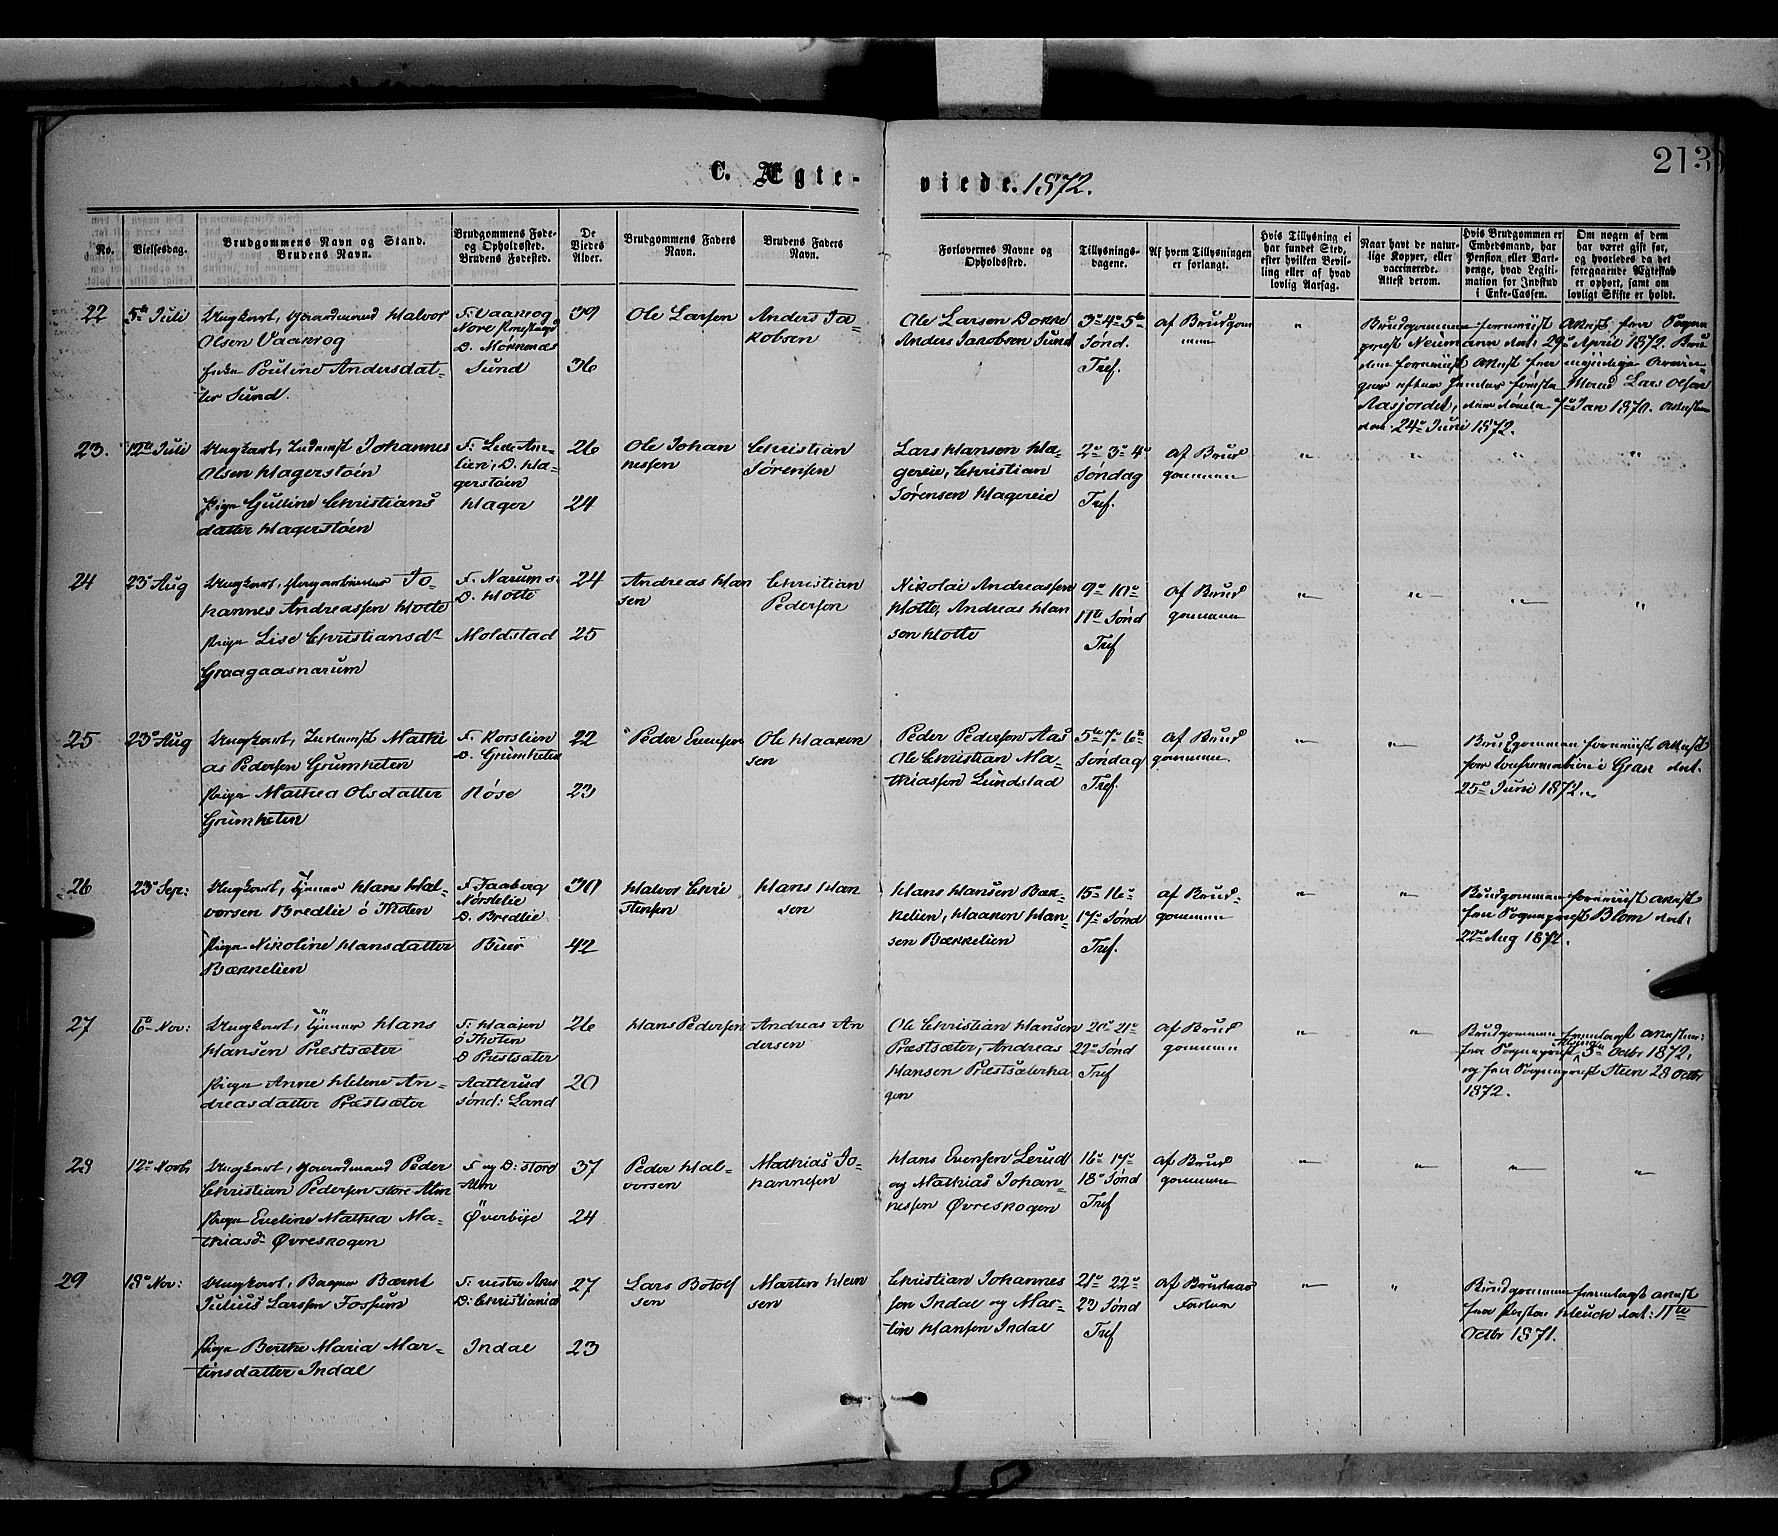 213
C. Ægte-
viede. 1872.
No.
Vielsesdag.
Brudgommens Navn og Stand.
Brudens Navn.
Brudgommens Føde-
og Opholdssted.
Brudens Fødested.
De
Viedes
Alder.
Brudgommens Faders
Navn.
Brudens Faders
Navn.
Forlovernes Navne og
Opholdssted.
Tillysnings-
dagene.
Af hvem Tillysningen
er forlangt.
Hvis Tillysning ei
har fundet Sted,
efter hvilken Bevil-
ling eller af hvad
lovlig Aarsag.
Naar havt de natur-
lige Kopper, eller
vaccinerede.
Attest derom.
Hvis Brudgommen er
Embedsmand, har
Pension eller Vart-
penge, hvad Legiti-
mation for Indskud
i Enke-Cassen.
Om nogen af dem
har været gift før,
og hvorledes da det
foregaaende Ægteskab
er ophørt, samt om
lovligt Skifte er holdt.
22
5te Juli
Ungkarl, Gaardmand Halvor
Olsen Vaakrog
Enke Pouline Andersdat-
ter Sund.
F: Vaakrog
Nore
Sund
39
36
Ole Larsen
Anders Ja-
kobsen
Ole Larsen Dokke
Anders Jacobsen Sund
3die 4de 5te
Sønd.
Tref.
af Brudgom
men
"
Brudgommen forevist Attest fra Sogne
prest Neumann dat: 29de April 1872. Bru
den forevist Attest fra
efter hendes første Mand Lars Olsen
Aasjordet, 7de Jan 1870.
dat. 24de Juni 1872.
23.
12te Juli
Ungkarl, Inderst Johannes
Olsen Hagerstøen
Pige Gulline Christians
datter Hagerstøen
F: Lede
lien, O. Ha-
gerstøen
Hager
26
24
Ole Johan
nesen
Christian
Sørensen
Lars Hansen Ha-
gereie, Christian
Sørensen Hagereie
2den 3die 4de
Søndag
Tref.
af Brud
gommen
"
"
"
"
24
23de Aug
Ungkarl, Jo-
hannes Andreassen Hotte
Pige Lise Christiansdr
Graagaasnarum
F. Narum
O. Hotte
Moldstad
24
25
Andreas Han
sen
Christian
Pedersen
Nikolai Andreassen
Hotte, Andreas Han
sen Hotte
9de 10de
11te Sønd
Tref
af Brud
gommen
"
"
"
"
25
23de Aug
Ungkarl, Inderst Mathi
as Pedersen Grumketen
Pige Mathea Olsdatter
Grumketen
F. Korslien
O. Grumketen
Røse
22
23
Peder Evensen
Ole Haaken
sen
Peder Pedersen Aas
Ole Christian Ma-
thiassen Lundstad
Søndag
Tref.
af Brud
gommen
"
"
Brudgommen forevist Attest
for Confirmation i Gran dat.
25de Juni 1872.
26
23de Sep:
Ungkarl, Tjener Hans Hal-
vorsen Bredlie ö Thoten
Pige Nikoline Hansdatter
Bækkelien
F. Faaberg
Nørstelie
O. Bredlie
Buer
30
42
Halvor Chri
stensen
Hans Han
sen
Hans Hansen Bæk-
kelien, Haaken Han-
sen Bækkelien
15de 16de
17de Sønd
Tref.
af Brud-
gommen
"
"
Brudgommen forevist Attest
fra Sogneprest Blom dat:
22de Aug 1872.
27
6te Nov:
Ungkarl, Tjener Hans
Hansen Prestsæter
Pige Anne Helene An-
dreasdatter Præstsæter
F. Haajen
ö Thoten
O Prestsæter
Aatterud
sønd: Land
26
20
Hans Pedersen
Andreas An
dersen
Ole Christian Hansen
Præstsæter, Andreas
Hansen Prestsæterha
gen
20de 21de
22de Sønd
Tref
af Brud
gommen
"
"
Brudgommen fremlagt Attester
fra Sogneprest 5te Octbr 1872,
og fra Sogneprest Steen 28 Octbr
1872.
28
12te Novb
Ungkarl, Gaardmand Peder
Christian Pedersen store Alm
Pige Eveline Mathea Ma-
thiasdr Øvreskogen
F og O: store
Alm
Øverbye
37
24
Peder Hal-
vorsen
Mathias Jo-
hannesen
Hans Evensen Lerud
og Mathias Johan-
nessen Øvreskogen
16de 17de
18de Sønd
Tref
af Brud
gommen
"
"
"
"
29
18de Nov:
Ungkarl, Bager Bærnt
Julius Larsen Fossum
Pige Berthe Maria Mar-
tinsdatter Indal
F: vestre Aker
O: Christiania
Indal
27
23
Lars Botolf
sen
Martin Han
sen
Christian Johannes
sen Indal og Mar-
tin Hansen Indal
21de 22de
23 Sønd
Tref
af Brudens
Fader
"
"
Brudgommen fremlagt Attest
fra Pastor Heuch dat: 11te
Octbr 1871.